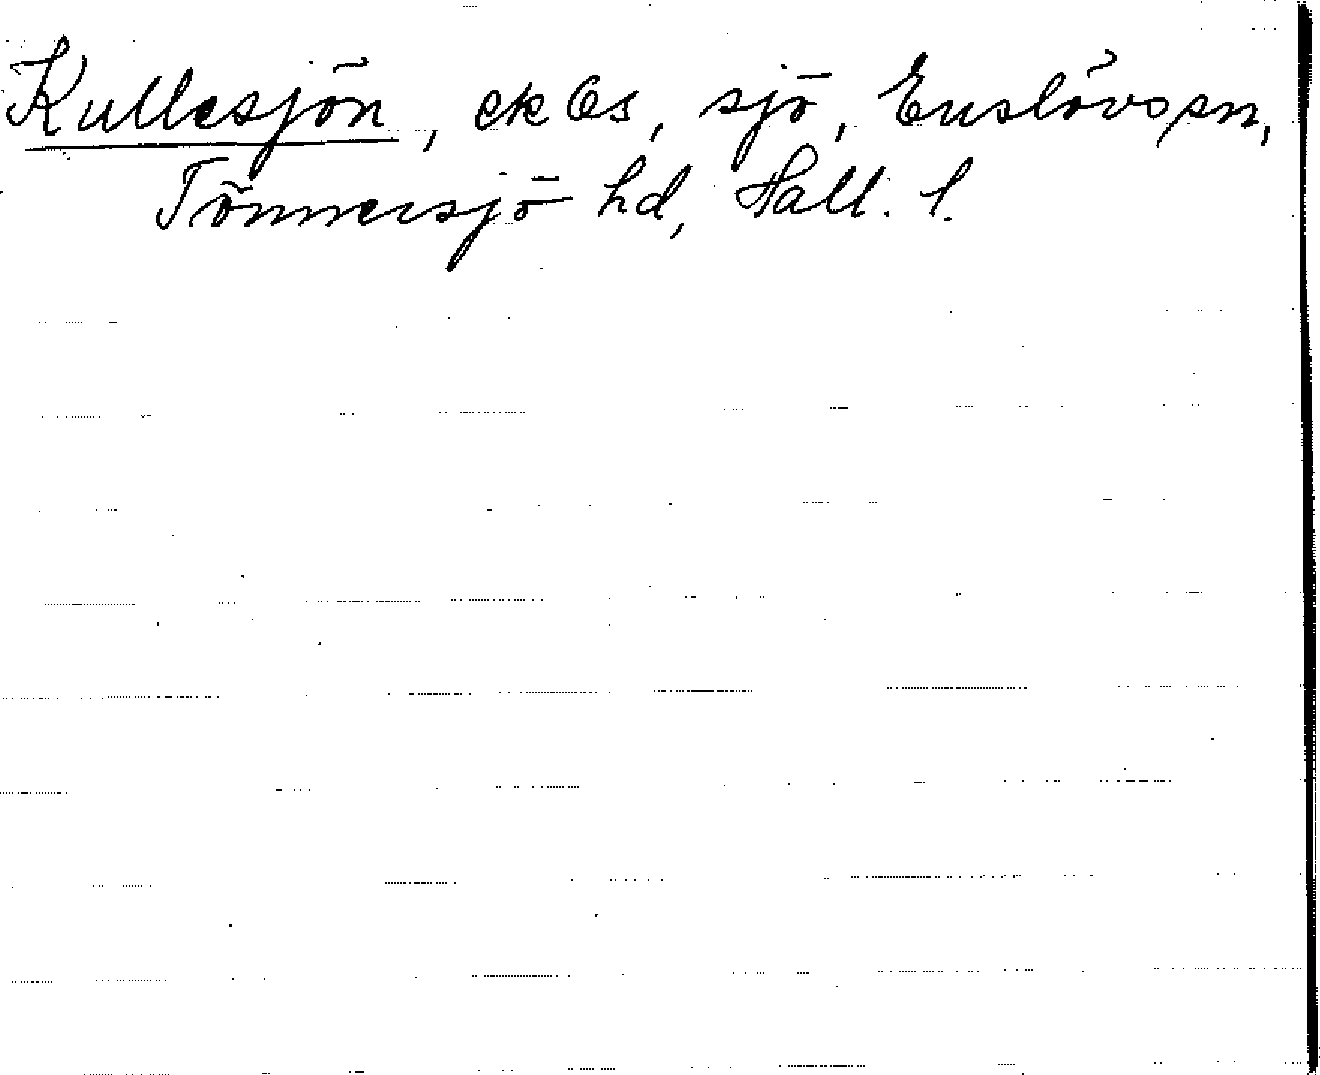 Kullesjön, ek Os, sjö, Enslövs sn,
Tönnersjö hd, Hall. l.